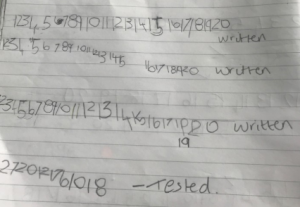 1234567891011121314151617181920 written
123456789101112131415 1617181920 written
1234567891011121314151617181920 written
19
2720121761018 - Tested.